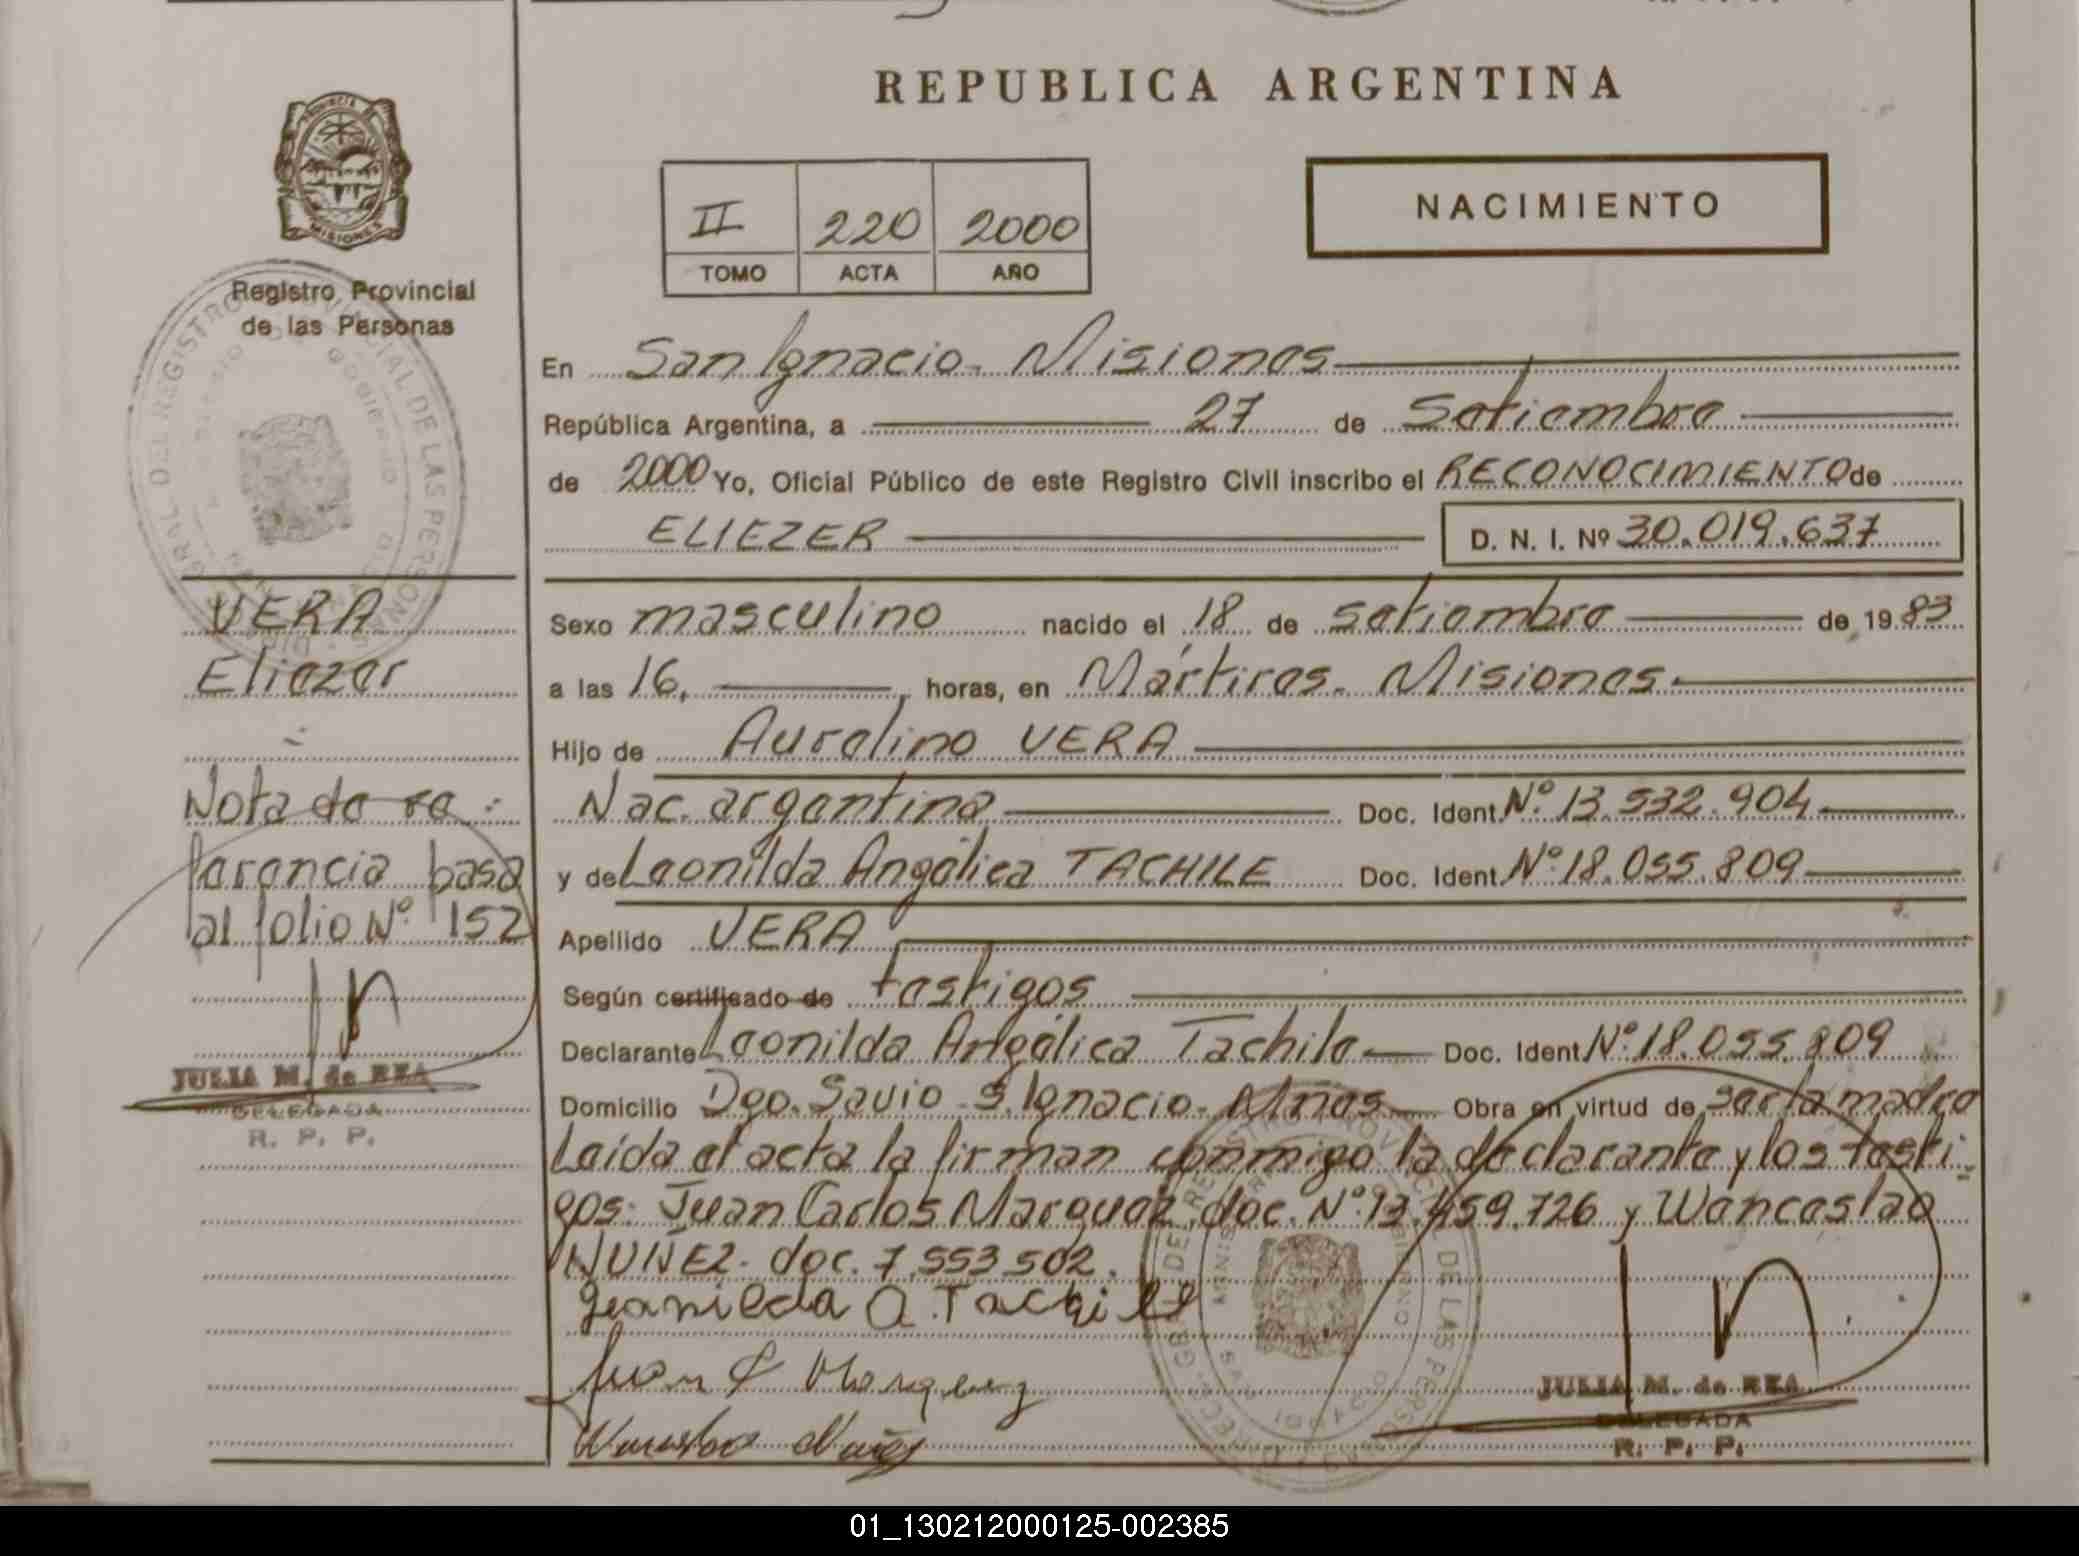 REPUBLICA ARGENTINA
PROVINCIA
MISIONES
Registro Provincial
de las Personas
II 220 2000
TOMO ACTA AÑO
NACIMIENTO
En San Ignacio - Misiones
República Argentina, a 27 de Setiembre
de 2000 Yo, Oficial Público de este Registro Civil inscribo el RECONOCIMIENTO de
ELIEZER D. N. I. Nº 30.019.637
Sexo masculino nacido el 18 de setiembre de 1983
a las 16, horas, en Mártires - Misiones.
Hijo de Aurelino VERA
Nac. argentina Doc. Ident. Nº 13.532.904
y de Leonilda Angélica TACHILE Doc. Ident. Nº 18.055.809
Apellido VERA
Según certificado de testigos
Declarante Leonilda Angélica Tachile Doc. Ident. Nº 18.055.809
Domicilio Dgo. Savio - S. Ignacio - Mnes Obra en virtud de ser la madre
Leída el acta la firman conmigo la declarante y los testi-
gos: Juan Carlos Marquez, doc. Nº 13.459.726 y Wenceslao
NUÑEZ - doc. 7.553.502.
Leonilda A. Tachile
Juan C Marquez
JULIA M. de REA
DELEGADA
R. P. P.
VERA
Eliezer
Nota de re:
ferencia pasa
al folio Nº 152
JULIA M. de REA
DELEGADA
R. P. P.
01_130212000125-002385